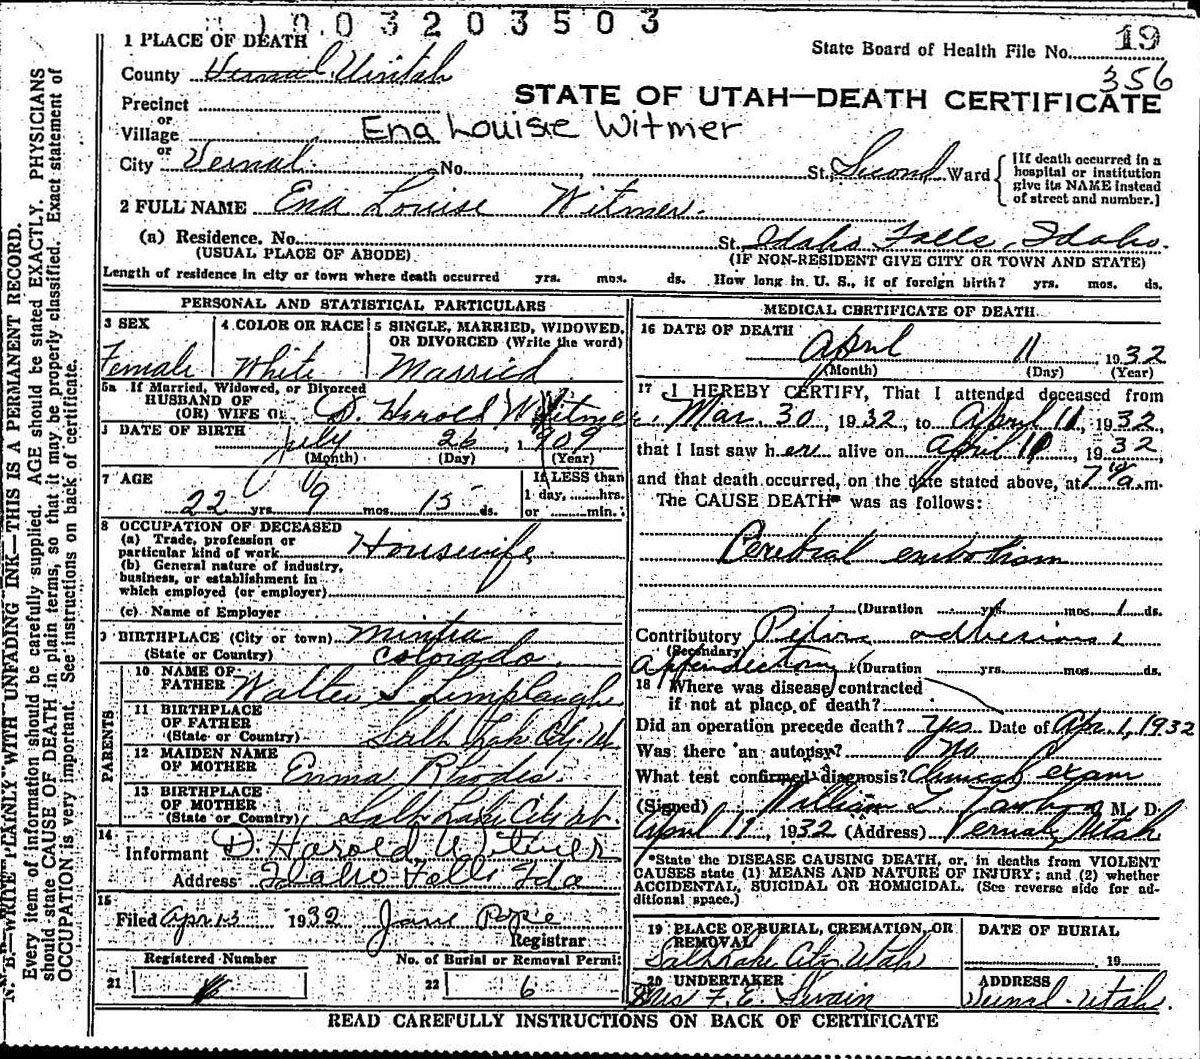 1003203503
1 PLACE OF DEATH
State Board of Health File No. 19
County Vernal Uintah
356
STATE OF UTAH—DEATH CERTIFICATE
Precinct
or
Village
Ena Louise Witmer
or
City Vernal No. St. Second Ward
[If death occurred in a hospital or institution give its NAME instead of street and number.]
2 FULL NAME Ena Louise Witmer.
(a) Residence. No. St. Idaho Falls, Idaho.
(USUAL PLACE OF ABODE) (IF NON-RESIDENT GIVE CITY OR TOWN AND STATE)
Length of residence in city or town where death occurred yrs. mos. ds. How long in U. S., if of foreign birth? yrs. mos. ds.
PERSONAL AND STATISTICAL PARTICULARS
3 SEX
Female
4 COLOR OR RACE
White
5 SINGLE, MARRIED, WIDOWED,
OR DIVORCED (Write the word)
Married
5a If Married, Widowed, or Divorced
HUSBAND OF
(OR) WIFE OF D. Harold Witmer
DATE OF BIRTH July 26, 1909
(Month) (Day) (Year)
7 AGE
22 yrs. 9 mos. 15 ds.
If LESS than
1 day, hrs.
or min.
8 OCCUPATION OF DECEASED
(a) Trade, profession or
particular kind of work Housewife
(b) General nature of industry,
business, or establishment in
which employed (or employer)
(c) Name of Employer
9 BIRTHPLACE (City or town)
(State or Country) Colorado.
PARENTS
10 NAME OF
FATHER Walter S
11 BIRTHPLACE
OF FATHER
(State or Country) Salt Lake City, Ut
12 MAIDEN NAME
OF MOTHER Emma Rhodes.
13 BIRTHPLACE
OF MOTHER
(State or Country) Salt Lake City Ut.
14
Informant D. Harold Witmer
Address Idaho Falls Ida
15
Filed Apr 13 1932 Jane Pope
Registrar
Registered Number
21
No. of Burial or Removal Permit
22 6
MEDICAL CERTFICATE OF DEATH
16 DATE OF DEATH
April 11 1932
(Month) (Day) (Year)
17 I HEREBY CERTIFY, That I attended deceased from
Mar. 30, 1932, to April 11, 1932,
that I last saw her alive on April 10, 1932,
and that death occurred, on the date stated above, at 7 10 a.m.
The CAUSE DEATH* was as follows:
Cerebral embolism
(Duration yrs. mos. 1 ds.
Contributory Pelvic adhesions,
(Secondary)
Appendectomy (Duration yrs. mos. ds.
18 Where was disease contracted
if not at place of death?
Did an operation precede death? yes Date of Apr. 1, 1932
Was there an autopsy? No
What test confirmed diagnosis? Clinical exam
(Signed) William M. D.
April 11, 1932 (Address) Vernal, Utah
*State the DISEASE CAUSING DEATH, or, in deaths from VIOLENT
CAUSES state (1) MEANS AND NATURE OF INJURY; and (2) whether
ACCIDENTAL, SUICIDAL OR HOMICIDAL. (See reverse side for ad-
ditional space.)
19 PLACE OF BURIAL, CREMATION, OR
REMOVAL
Salt Lake City, Utah
DATE OF BURIAL
19
20 UNDERTAKER
Mrs F. E. Swain
ADDRESS
Vernal-Utah.
READ CAREFULLY INSTRUCTIONS ON BACK OF CERTIFICATE
N. B.—WRITE PLAINLY WITH UNFADING INK—THIS IS A PERMANENT RECORD.
Every item of information should be carefully supplied. AGE should be stated EXACTLY. PHYSICIANS
should state CAUSE OF DEATH in plain terms, so that it may be properly classified. Exact statement of
OCCUPATION is very important. See instructions on back of certificate.